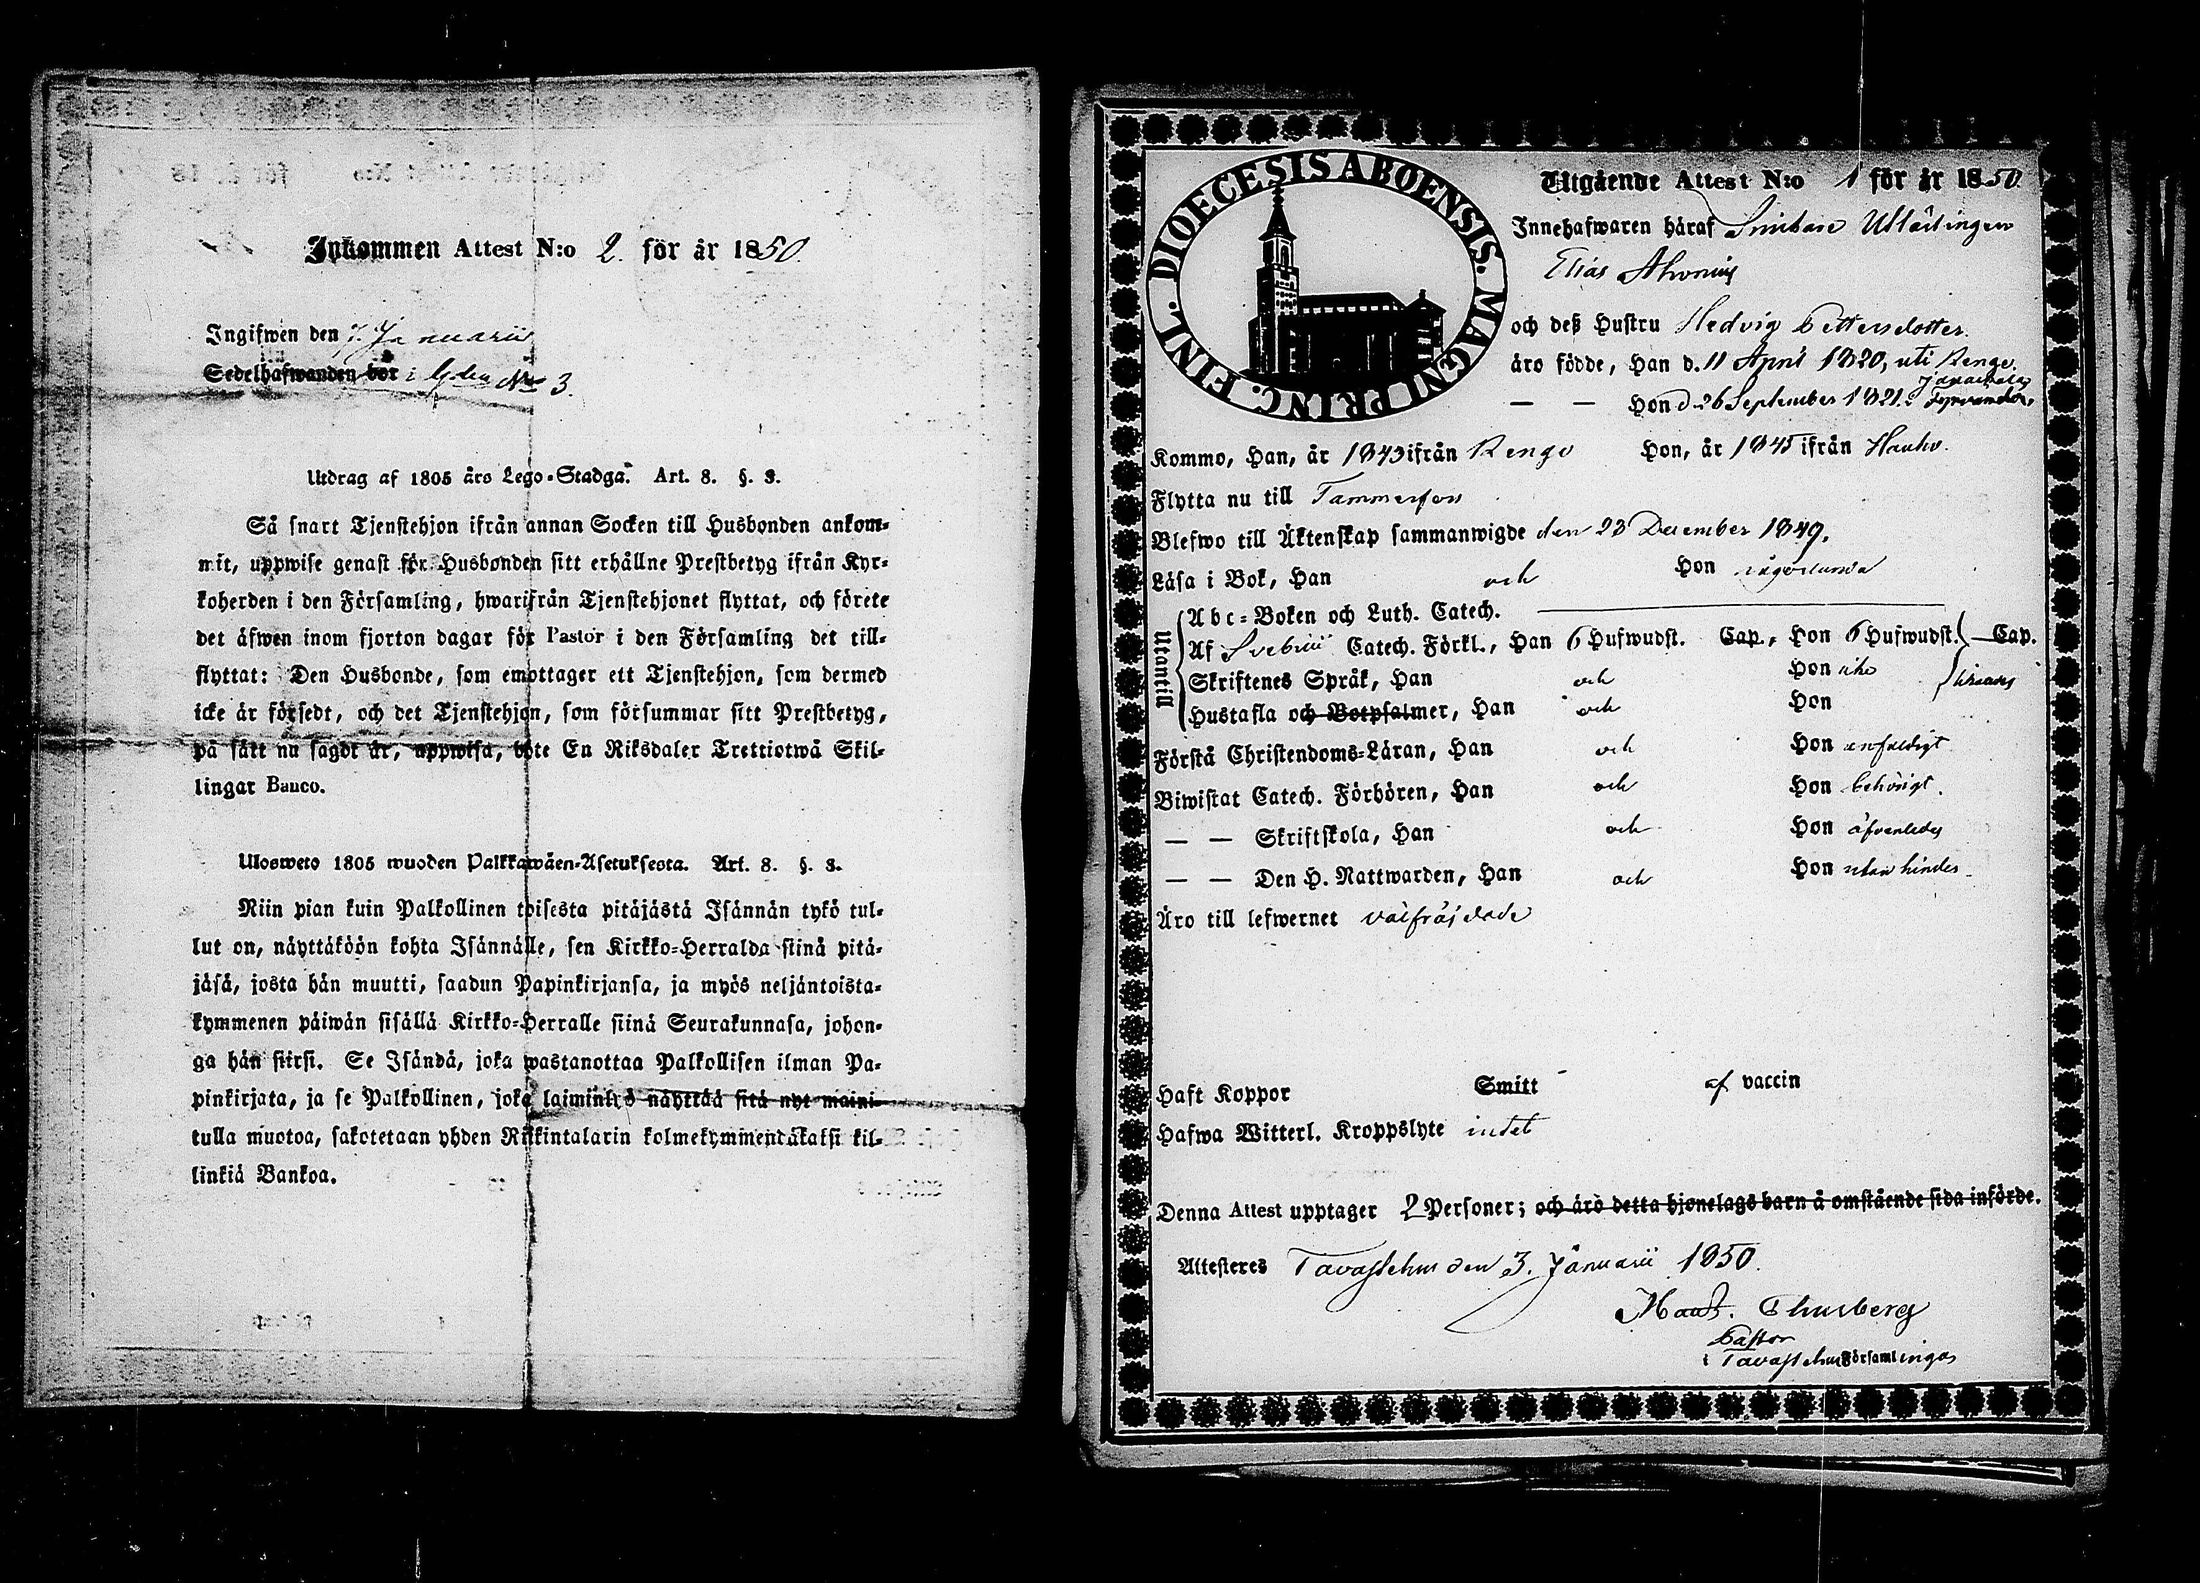 Inkommen Attest N:o 2. för år 1850.
Ingifwen den 7. Januarii
Sedelhafwanden bor i Gden No 3.
Utdrag af 1805 års Lego-Stadga. Art. 8. §. 3.
Så snart Tjenstehjon ifrån annan Socken till Husbonden ankom-
mit, uppwise genast för Husbonden sitt erhållne Prestbetyg ifrån Kyr-
koherden i den Församling, hwarifrån Tjenstehjonet flyttat, och förete
det äfwen inom fjorton dagar för Pastor i den Församling det till-
flyttat: Den Husbonde, som emottager ett Tjenstehjon, som dermed
icke är försedt, och det Tjenstehjon, som försummar sitt Prestbetyg,
på sätt nu sagdt är, uppwisa, böte En Riksdaler Trettiotwå Skil-
lingar Banco.
Ulosweto 1805 wuoden Palkkawäen-Asetuksesta. Art. 8. §. 3.
Niin pian kuin Palkollinen toisesta pitäjästä Isännän tykö tul-
lut on, näyttäköön kohta Isännälle, sen Kirkko-Herralda siinä pitä-
jäsä, josta hän muutti, saadun Papinkirjansa, ja myös neljäntoista-
kymmenen päiwän sisällä Kirkko-Herralle siinä Seurakunnasa, johon-
ga hän siirsi. Se Isändä, joka wastanottaa Palkollisen ilman Pa-
pinkirjata, ja se Palkollinen, joka laiminlyö näyttää sitä nyt maini-
tulla muotoa, sakotetaan yhden Riikintalarin kolmekymmendäkaksi kil-
linkiä Bankoa.
DIOECESIS ABOENSIS. MAGNI PRINC. FINL.
Utgående Attest N:o 1 för år 1850.
Innehafwaren häraf Smibare Utlärlingen
Elias Ahonius
och deß Hustru Hedvig Pettersdotter.
äro födde, Han d. 11 April 1820, uti Rengo.
Janackala
— — Hon d 26 September 1821.
Kommo, Han, år 1843 ifrån Rengo Hon, år 1845 ifrån Hauho.
Flytta nu till Tammerfors
Blefwo till Äktenskap sammanwigde den 23 December 1849.
Läsa i Bok, Han och Hon
Utantill
Abc-Boken och Luth. Catech.
Af Svebilii Catech. Förkl., Han 6 Hufwudst. Cap., Hon 6 Hufwudst. Cap.
Skriftenes Språk, Han och Hon icke
Hustafla och Botpsalmer, Han och Hon
Förstå Christendoms-Läran, Han och Hon enfaldigt
Biwistat Catech. Förhören, Han och Hon behörigt.
— — Skriftskola, Han och Hon äfvenledes
— — Den H. Nattwarden, Han och Hon utan hinder
Äro till lefwernet välfräjdade
Haft Koppor Smitt af vaccin
Hafwa Witterl. Kroppslyte intet
Denna Attest upptager 2 Personer; och äro detta hjonelags barn å omstående sida införde.
Attesteres Tavastehus den 3. Januarii 1850.
Maur. Thusberg
Pastor
i Tavastehus Församlingar